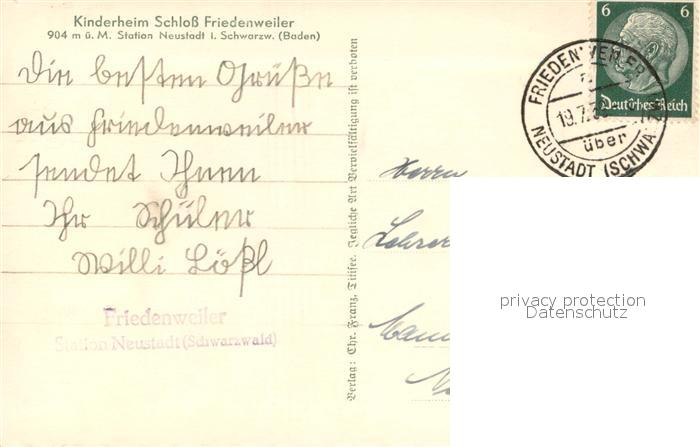 Kinderheim Schloß Friedenweiler
904 m ü. M. Station Neustadt i. Schwarzw. (Baden)
Die besten Grüße
aus Friedenweiler
sendet Ihnen
Ihr Schüler
Willi Lößl
Friedenweiler
Station Neustadt (Schwarzwald)
Verlag: Chr. Franz, Titisee. Jegliche Art Vervielfältigung ist verboten
6 6
Deutsches Reich
FRIEDENWEILER
19.7.
über
NEUSTADT (SCHWA
Herrn
Lehrer
privacy protection
Datenschutz